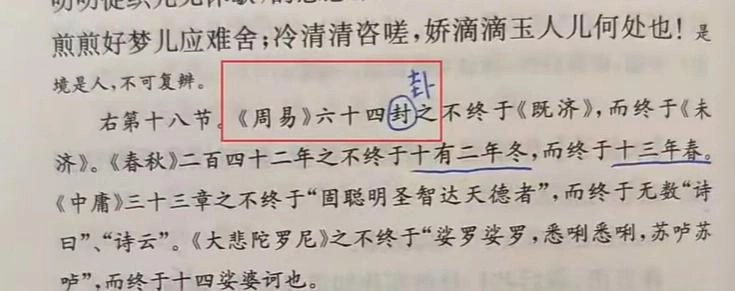 煎煎好梦儿应难舍；冷清清咨嗟，娇滴滴玉人儿何处也！是
境是人，不可复辨。
卦
右第十八节。《周易》六十四封之不终于《既济》，而终于《未
济》。《春秋》二百四十二年之不终于十有二年冬，而终于十三年春。
《中庸》三十三章之不终于“固聪明圣智达天德者”，而终于无数“诗
曰”、“诗云”。《大悲陀罗尼》之不终于“娑罗娑罗，悉唎悉唎，苏嚧苏
嚧”，而终于十四娑婆诃也。